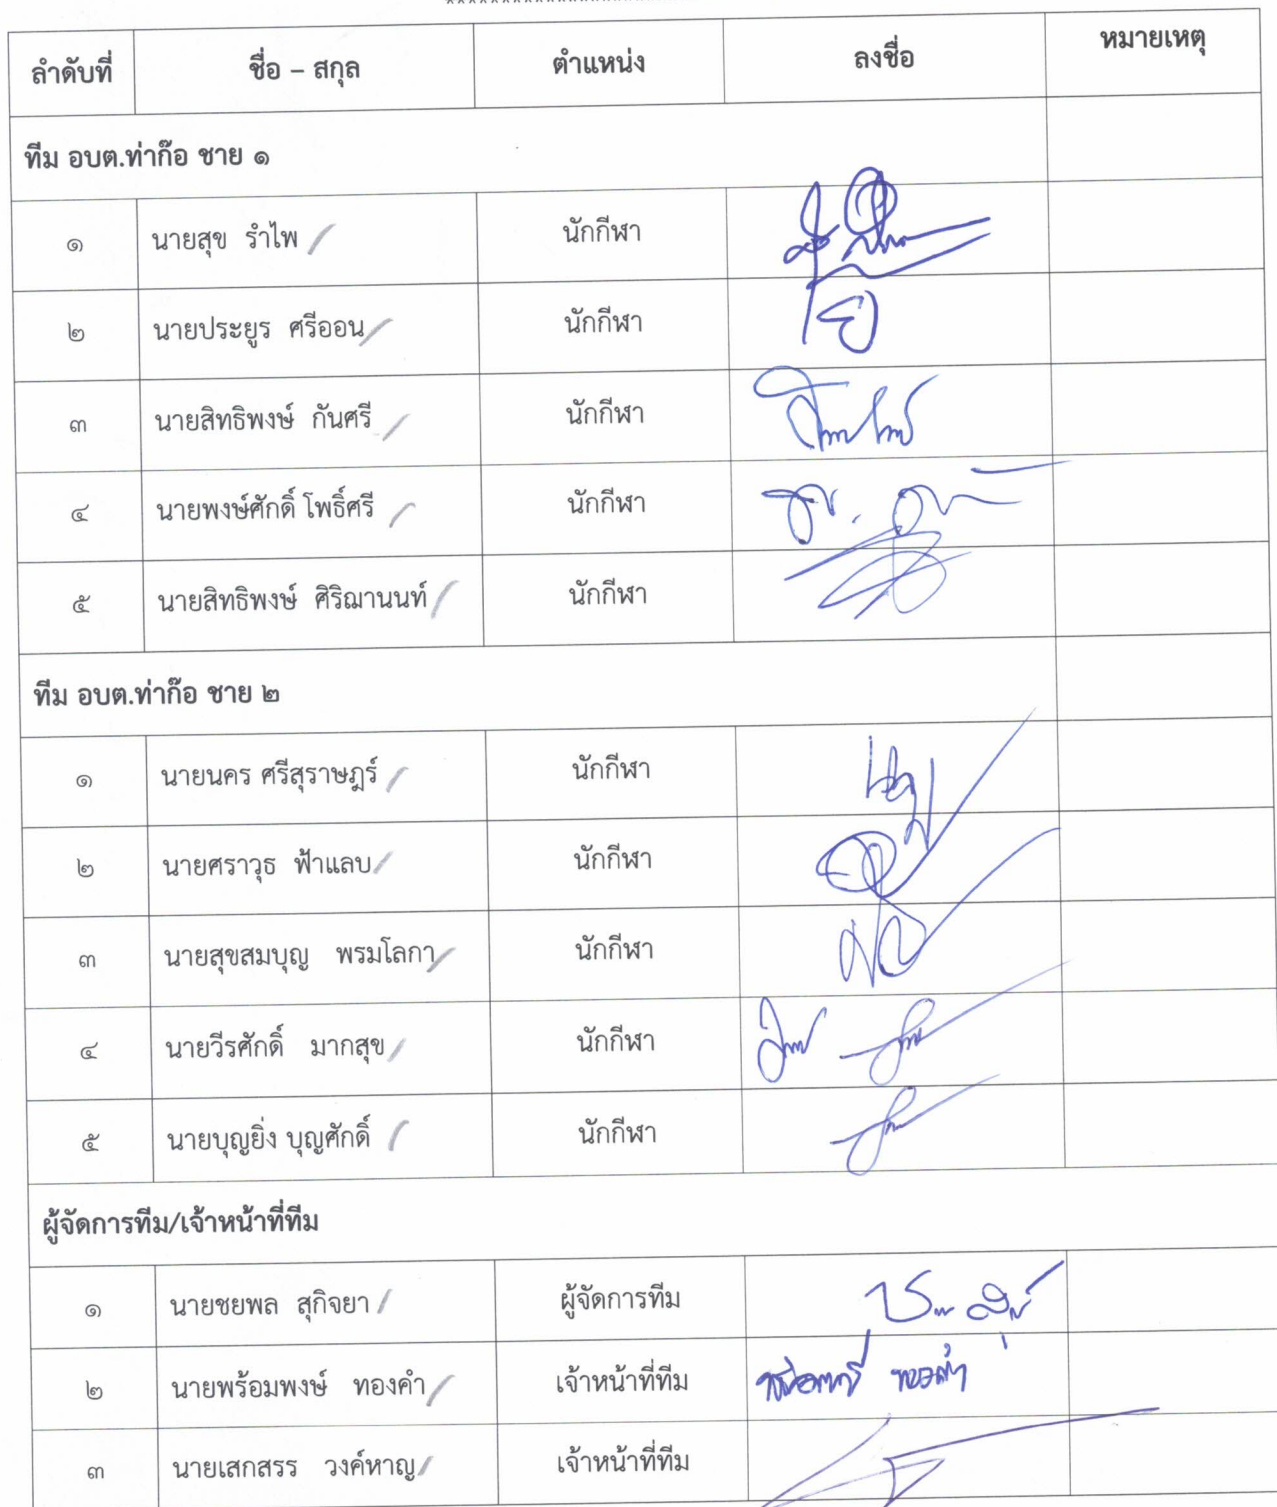 ลำดับที่ ชื่อ – สกุล ตำแหน่ง ลงชื่อ หมายเหตุ
ทีม อบต.ท่าก๊อ ชาย ๑
๑ นายสุข รำไพ นักกีฬา
๒ นายประยูร ศรีออน นักกีฬา
๓ นายสิทธิพงษ์ กันศรี นักกีฬา
๔ นายพงษ์ศักดิ์ โพธิ์ศรี นักกีฬา
๕ นายสิทธิพงษ์ ศิริฌานนท์ นักกีฬา
ทีม อบต.ท่าก๊อ ชาย ๒
๑ นายนคร ศรีสุราษฎร์ นักกีฬา
๒ นายศราวุธ ฟ้าแลบ นักกีฬา
๓ นายสุขสมบุญ พรมโลกา นักกีฬา
๔ นายวีรศักดิ์ มากสุข นักกีฬา
๕ นายบุญยิ่ง บุญศักดิ์ นักกีฬา
ผู้จัดการทีม/เจ้าหน้าที่ทีม
๑ นายชยพล สุกิจยา ผู้จัดการทีม
๒ นายพร้อมพงษ์ ทองคำ เจ้าหน้าที่ทีม
๓ นายเสกสรร วงค์หาญ เจ้าหน้าที่ทีม